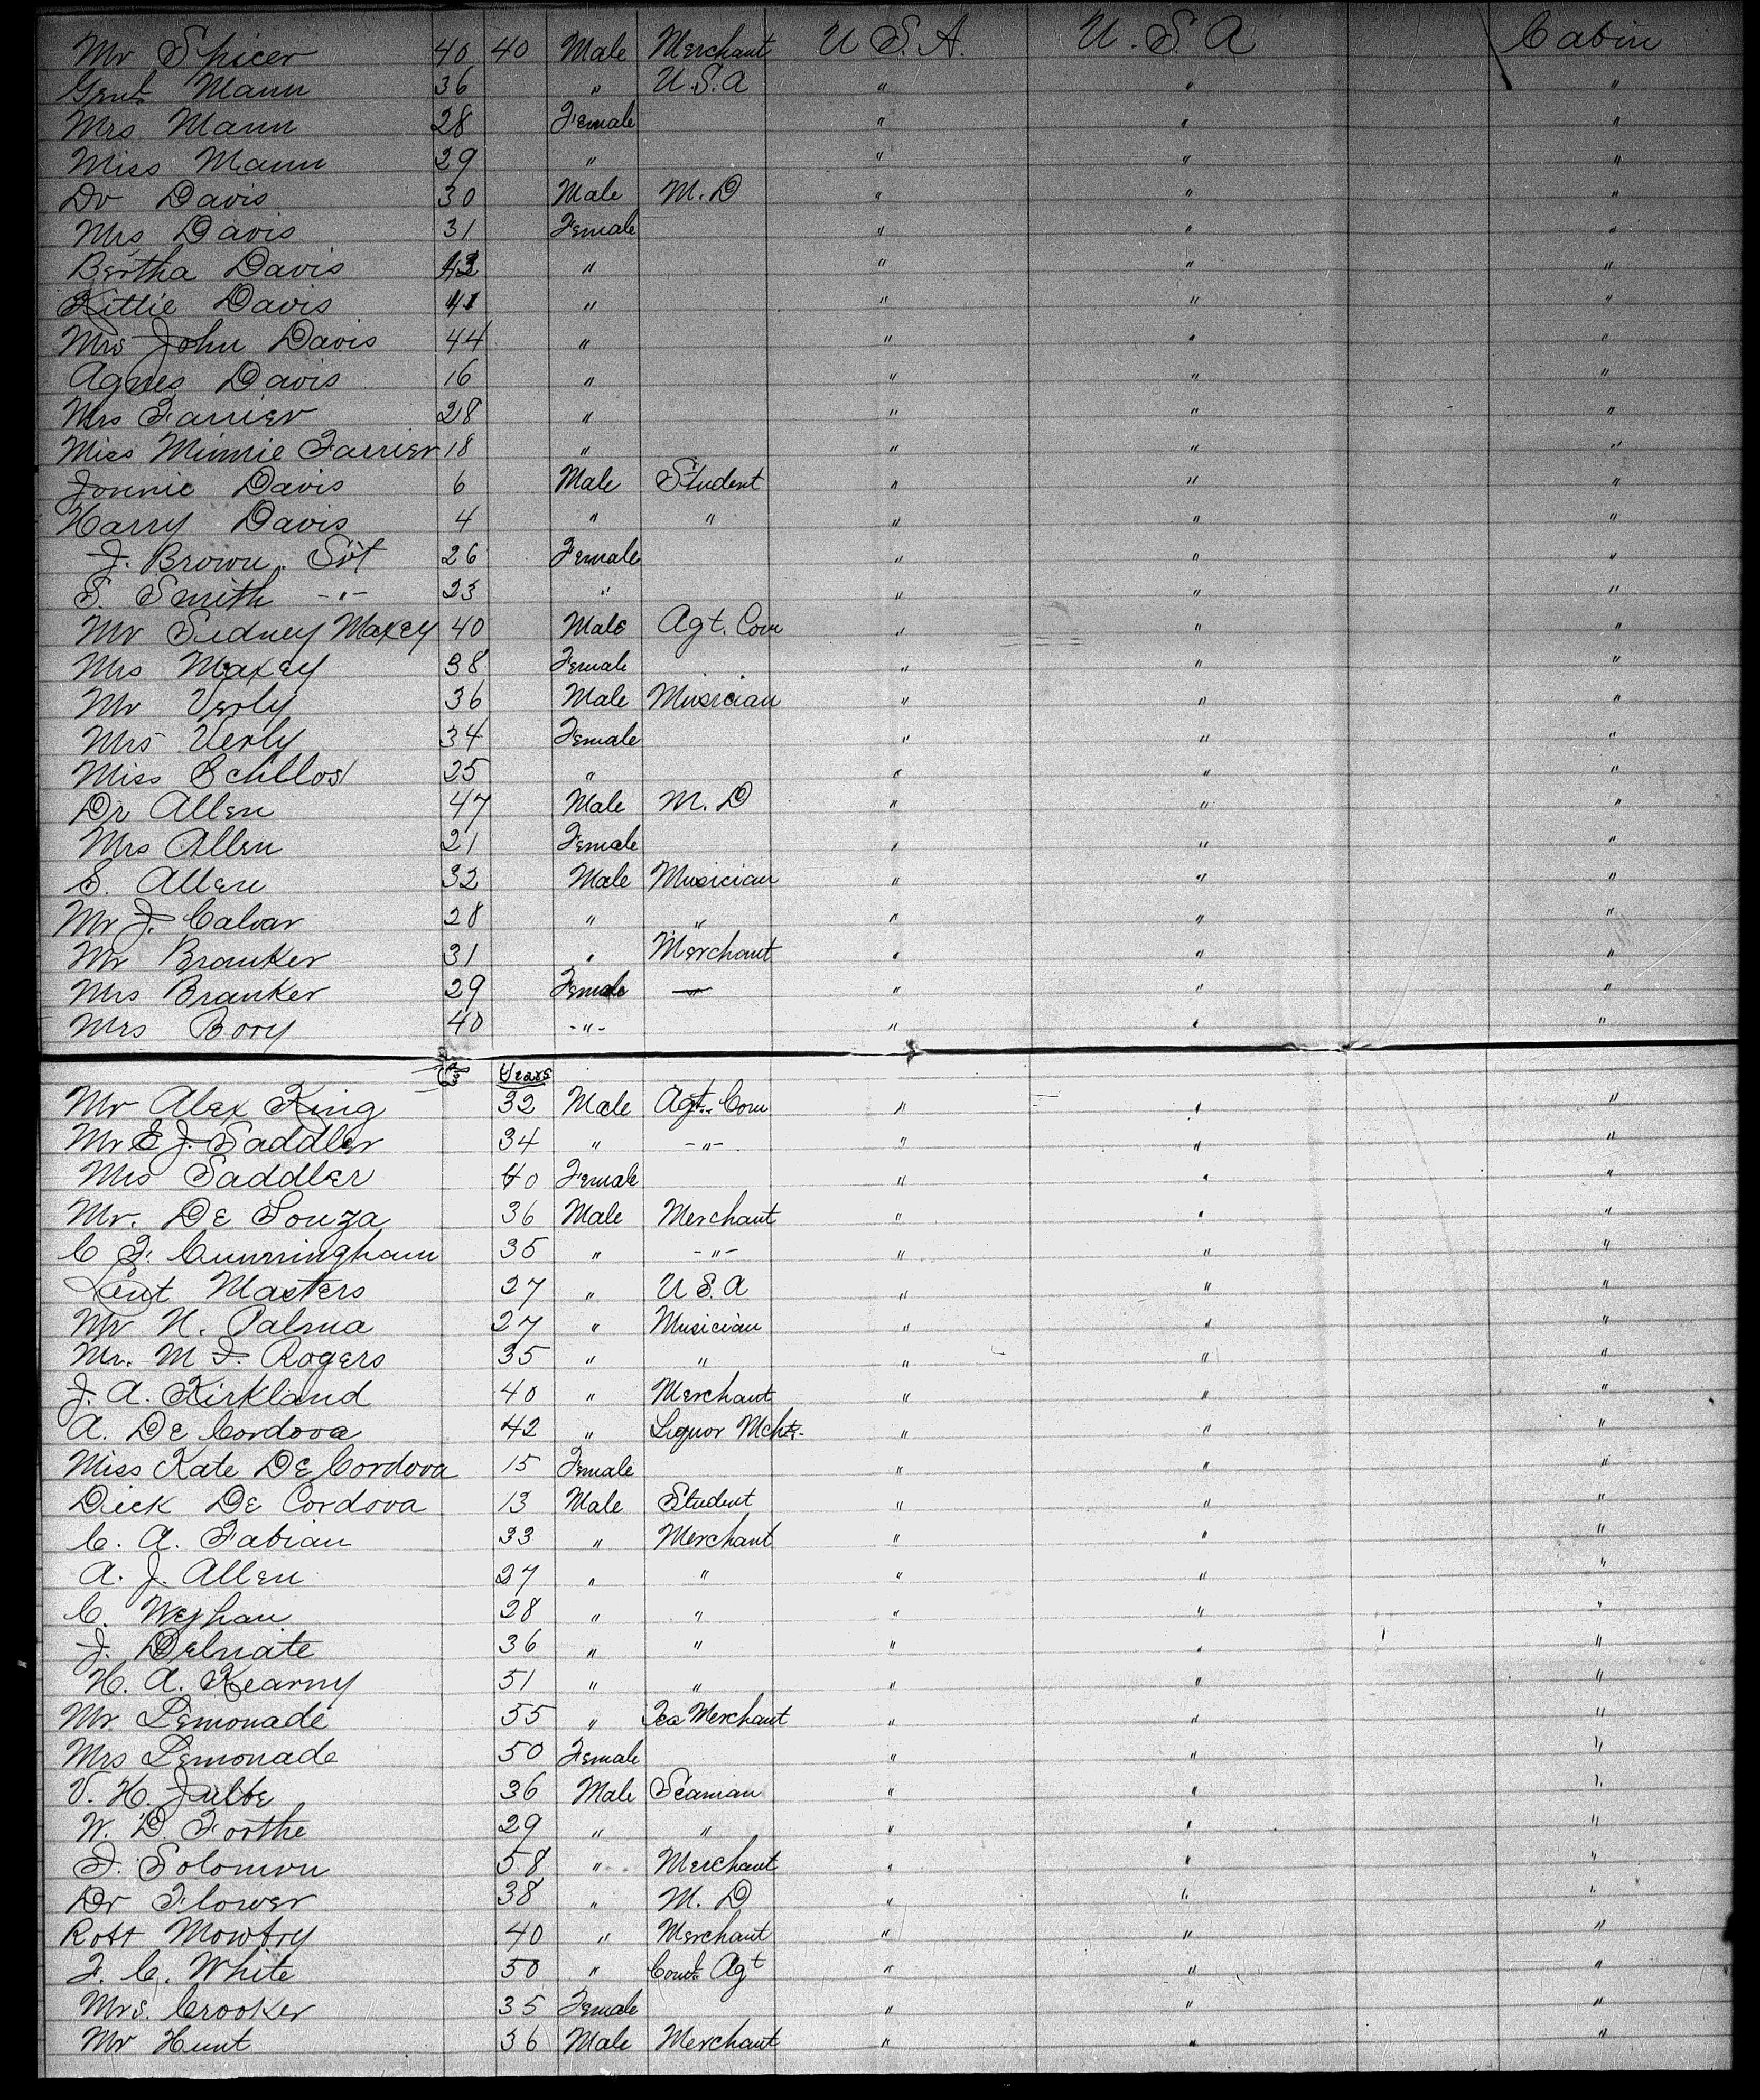 Mr Spicer 40 40 Male Merchant U.S.A. U.S.A Cabin
Genl. Mann 36 " U.S.A " " "
Mrs Mann 28 Female " " "
Miss Mann 29 " " " "
Dr Davis 30 Male M.D " " "
Mrs Davis 31 Female " " "
Bertha Davis " " " "
Kittie Davis " " " "
Mrs John Davis 44 " " " "
Agnes Davis 16 " " " "
Mrs Farrier 28 " " " "
Miss Minnie Farrier 18 " " " "
Jonnie Davis 6 Male Student " " "
Harry Davis 4 " " " " "
J. Brown. Svt 26 Female " " "
S. Smith -"- 23 " " " "
Mr Sidney Maxey 40 Male Agt. Com " " "
Mrs Maxey 38 Female " " "
Mr Verly 36 Male Musician " " "
Mrs Verly 34 Female " " "
Miss 25 " " " "
Dr Allen 47 Male M.D " " "
Mrs Allen 21 Female " " "
S. Allen 32 Male Musician " " "
Mr J. Calvar 28 " " " " "
Mr Branker 31 " Merchant " " "
Mrs Branker 29 Female — " " "
Mrs Bory 40 -"- " " "
Years
Mr Alex King 32 Male Agt. Com " " "
Mr E J. Saddler 34 " -"- " " "
Mrs Saddler 40 Female " " "
Mr. De Souza 36 Male Merchant " " "
C F. Cunningham 35 " -"- " " "
Leut Masters 27 " U S. A " " "
Mr N. Palma 27 " Musician " " "
Mr. M J. Rogers 35 " " " " "
J. A. Kirkland 40 " Merchant " " "
A. De Cordova 42 " Liquor Mcht. " " "
Miss Kate De Cordova 15 Female " " "
Dick De Cordova 13 Male Student " " "
C. A. Fabian 33 " Merchant " " "
A. J. Allen 27 " " " " "
C. 28 " " " " "
J. 36 " " " " "
H. A. Kearny 51 " " " " "
Mr Lemonade 55 " Tea Merchant " " "
Mrs Lemonade 50 Female " " "
V. H. Julbe 36 Male Seaman " " "
W. D. Forthe 29 " " " " "
J. Solomon 58 " Merchant " " "
Dr Flower 38 " M. D " " "
Robt Mowbry 40 " Merchant " " "
F. C. White 50 " Coml. Agt " " "
Mrs. Crooker 35 Female " " "
Mr Hunt 36 Male Merchant " " "